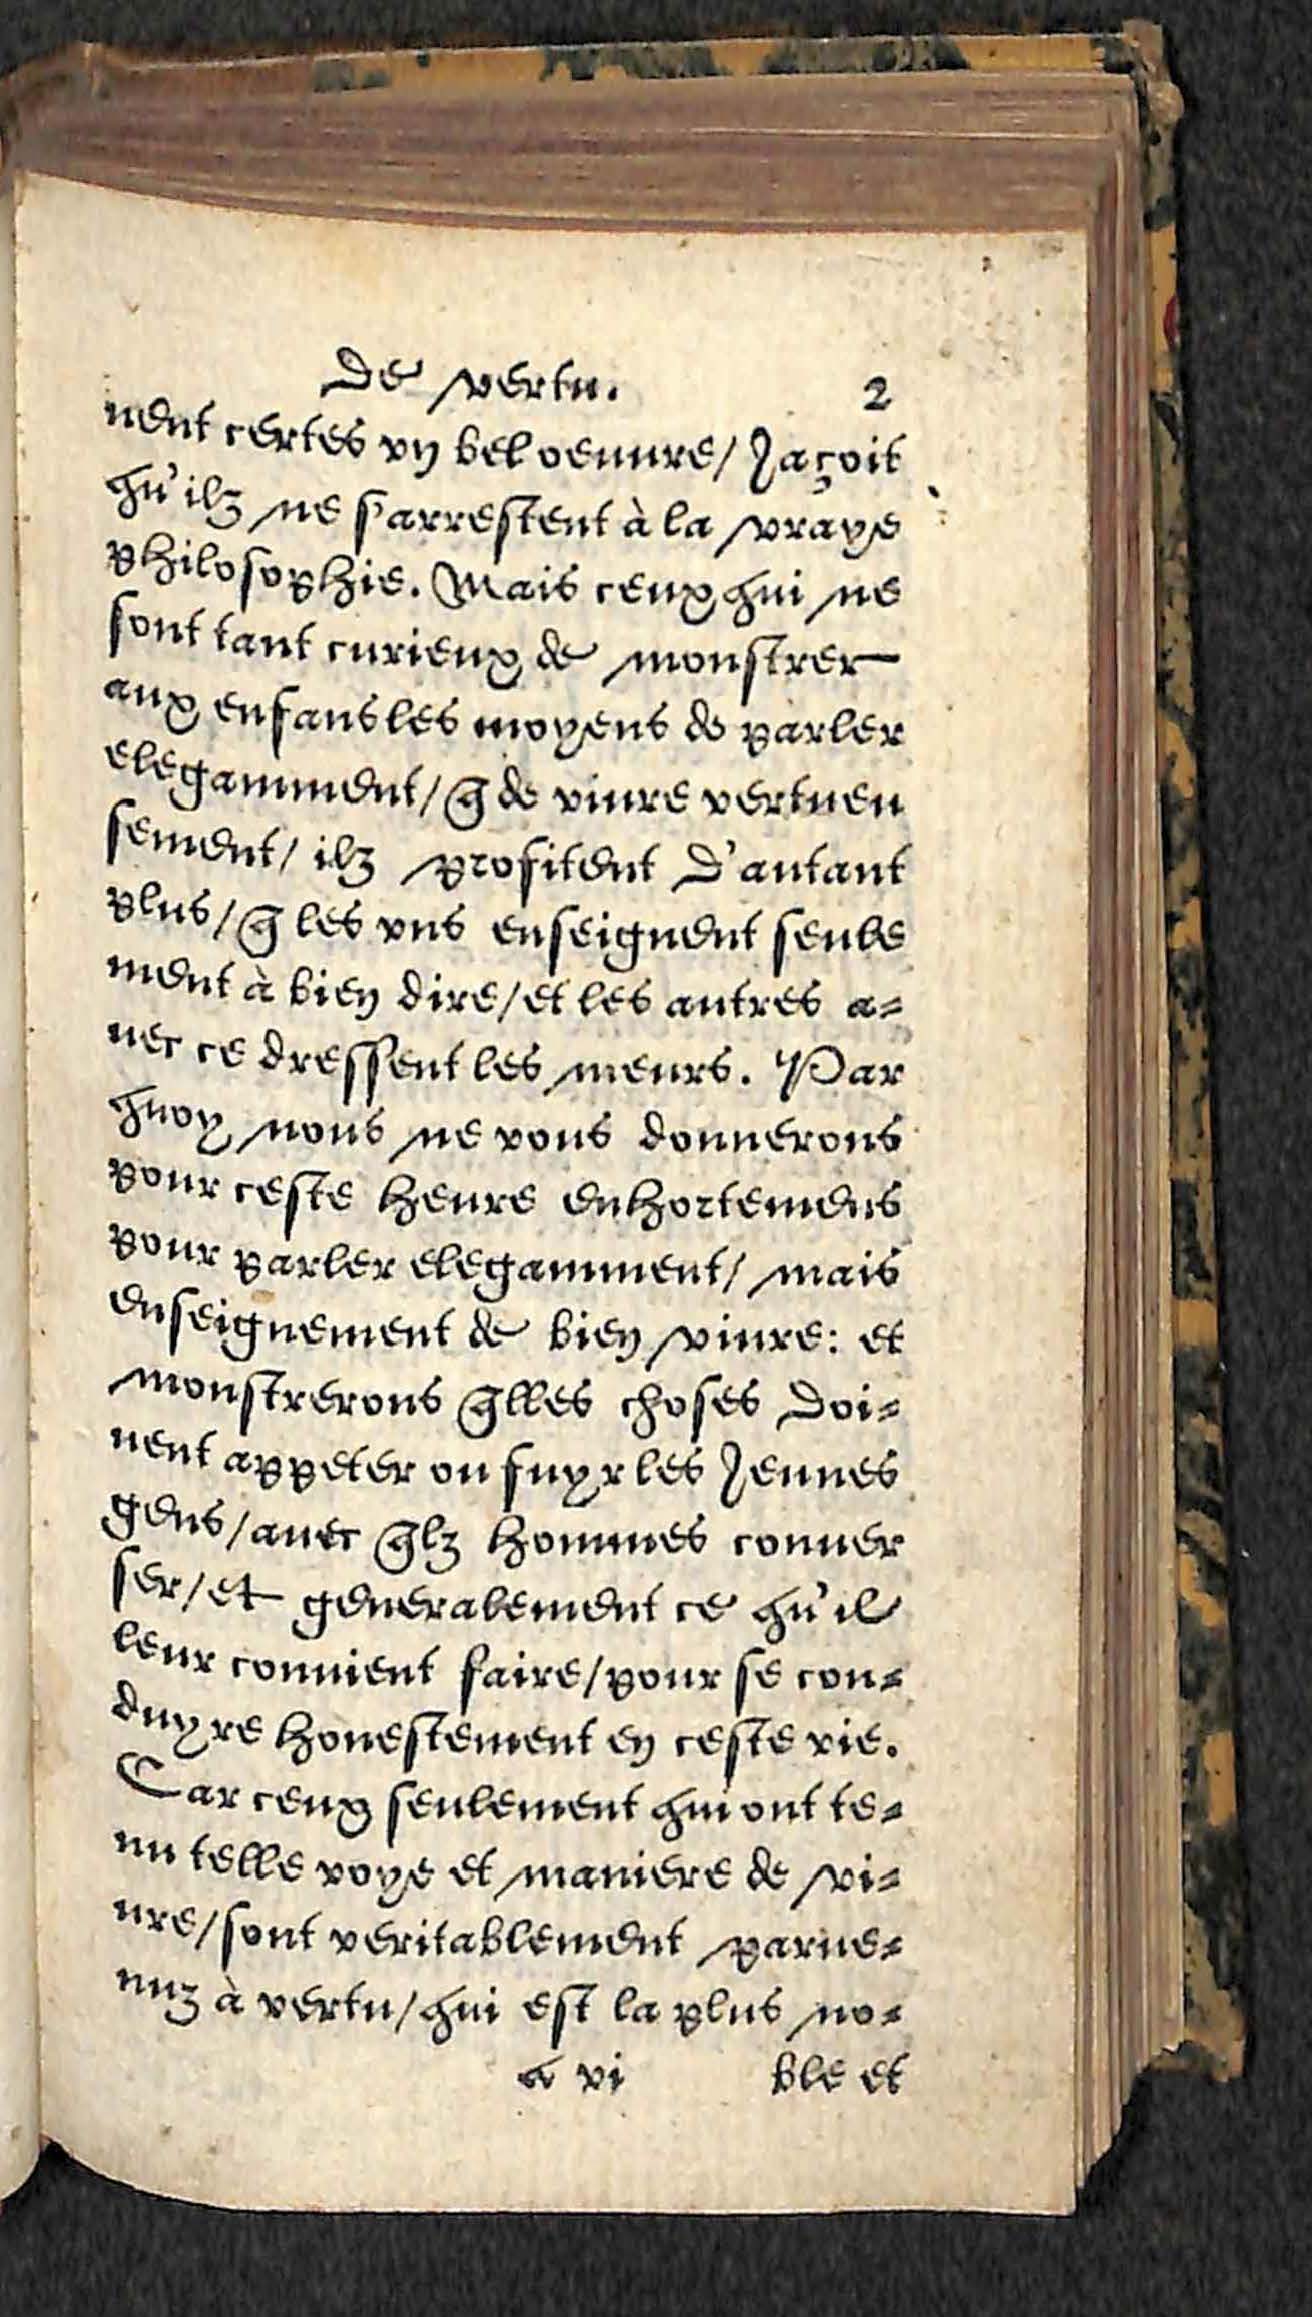 De vertu. 2
uent certes vn bel oeuure/ Jaçoit
qu'ilz ne s'arrestent à la vraye
philosophie. Mais ceux qui ne
sont tant curieux de monstrer
aux enfans les moyens de parler
elegamment/ q̃ de viure vertueu
sement/ ilz profitent D'autant
plus/ q̃ les vns enseignent seule
ment à bien dire/ et les autres a=
uec ce dressent les meurs. Par
quoy nous ne vous donnerons
pour ceste heure enhortemens
pour parler elegamment/ mais
enseignement de bien viure: et
monstrerons q̃lles choses Doi=
uent appeter ou fuyr les Jeunes
gens/ auec q̃lz hommes conuer
ser/ et generalement ce qu'il
leur conuient faire/ pour se con=
duyre honestement en ceste vie.
Car ceux seulement qui ont te=
nu telle voye et maniere de vi=
ure/ sont veritablement parue=
nuz à vertu/ qui est la plus no=
a vi ble et